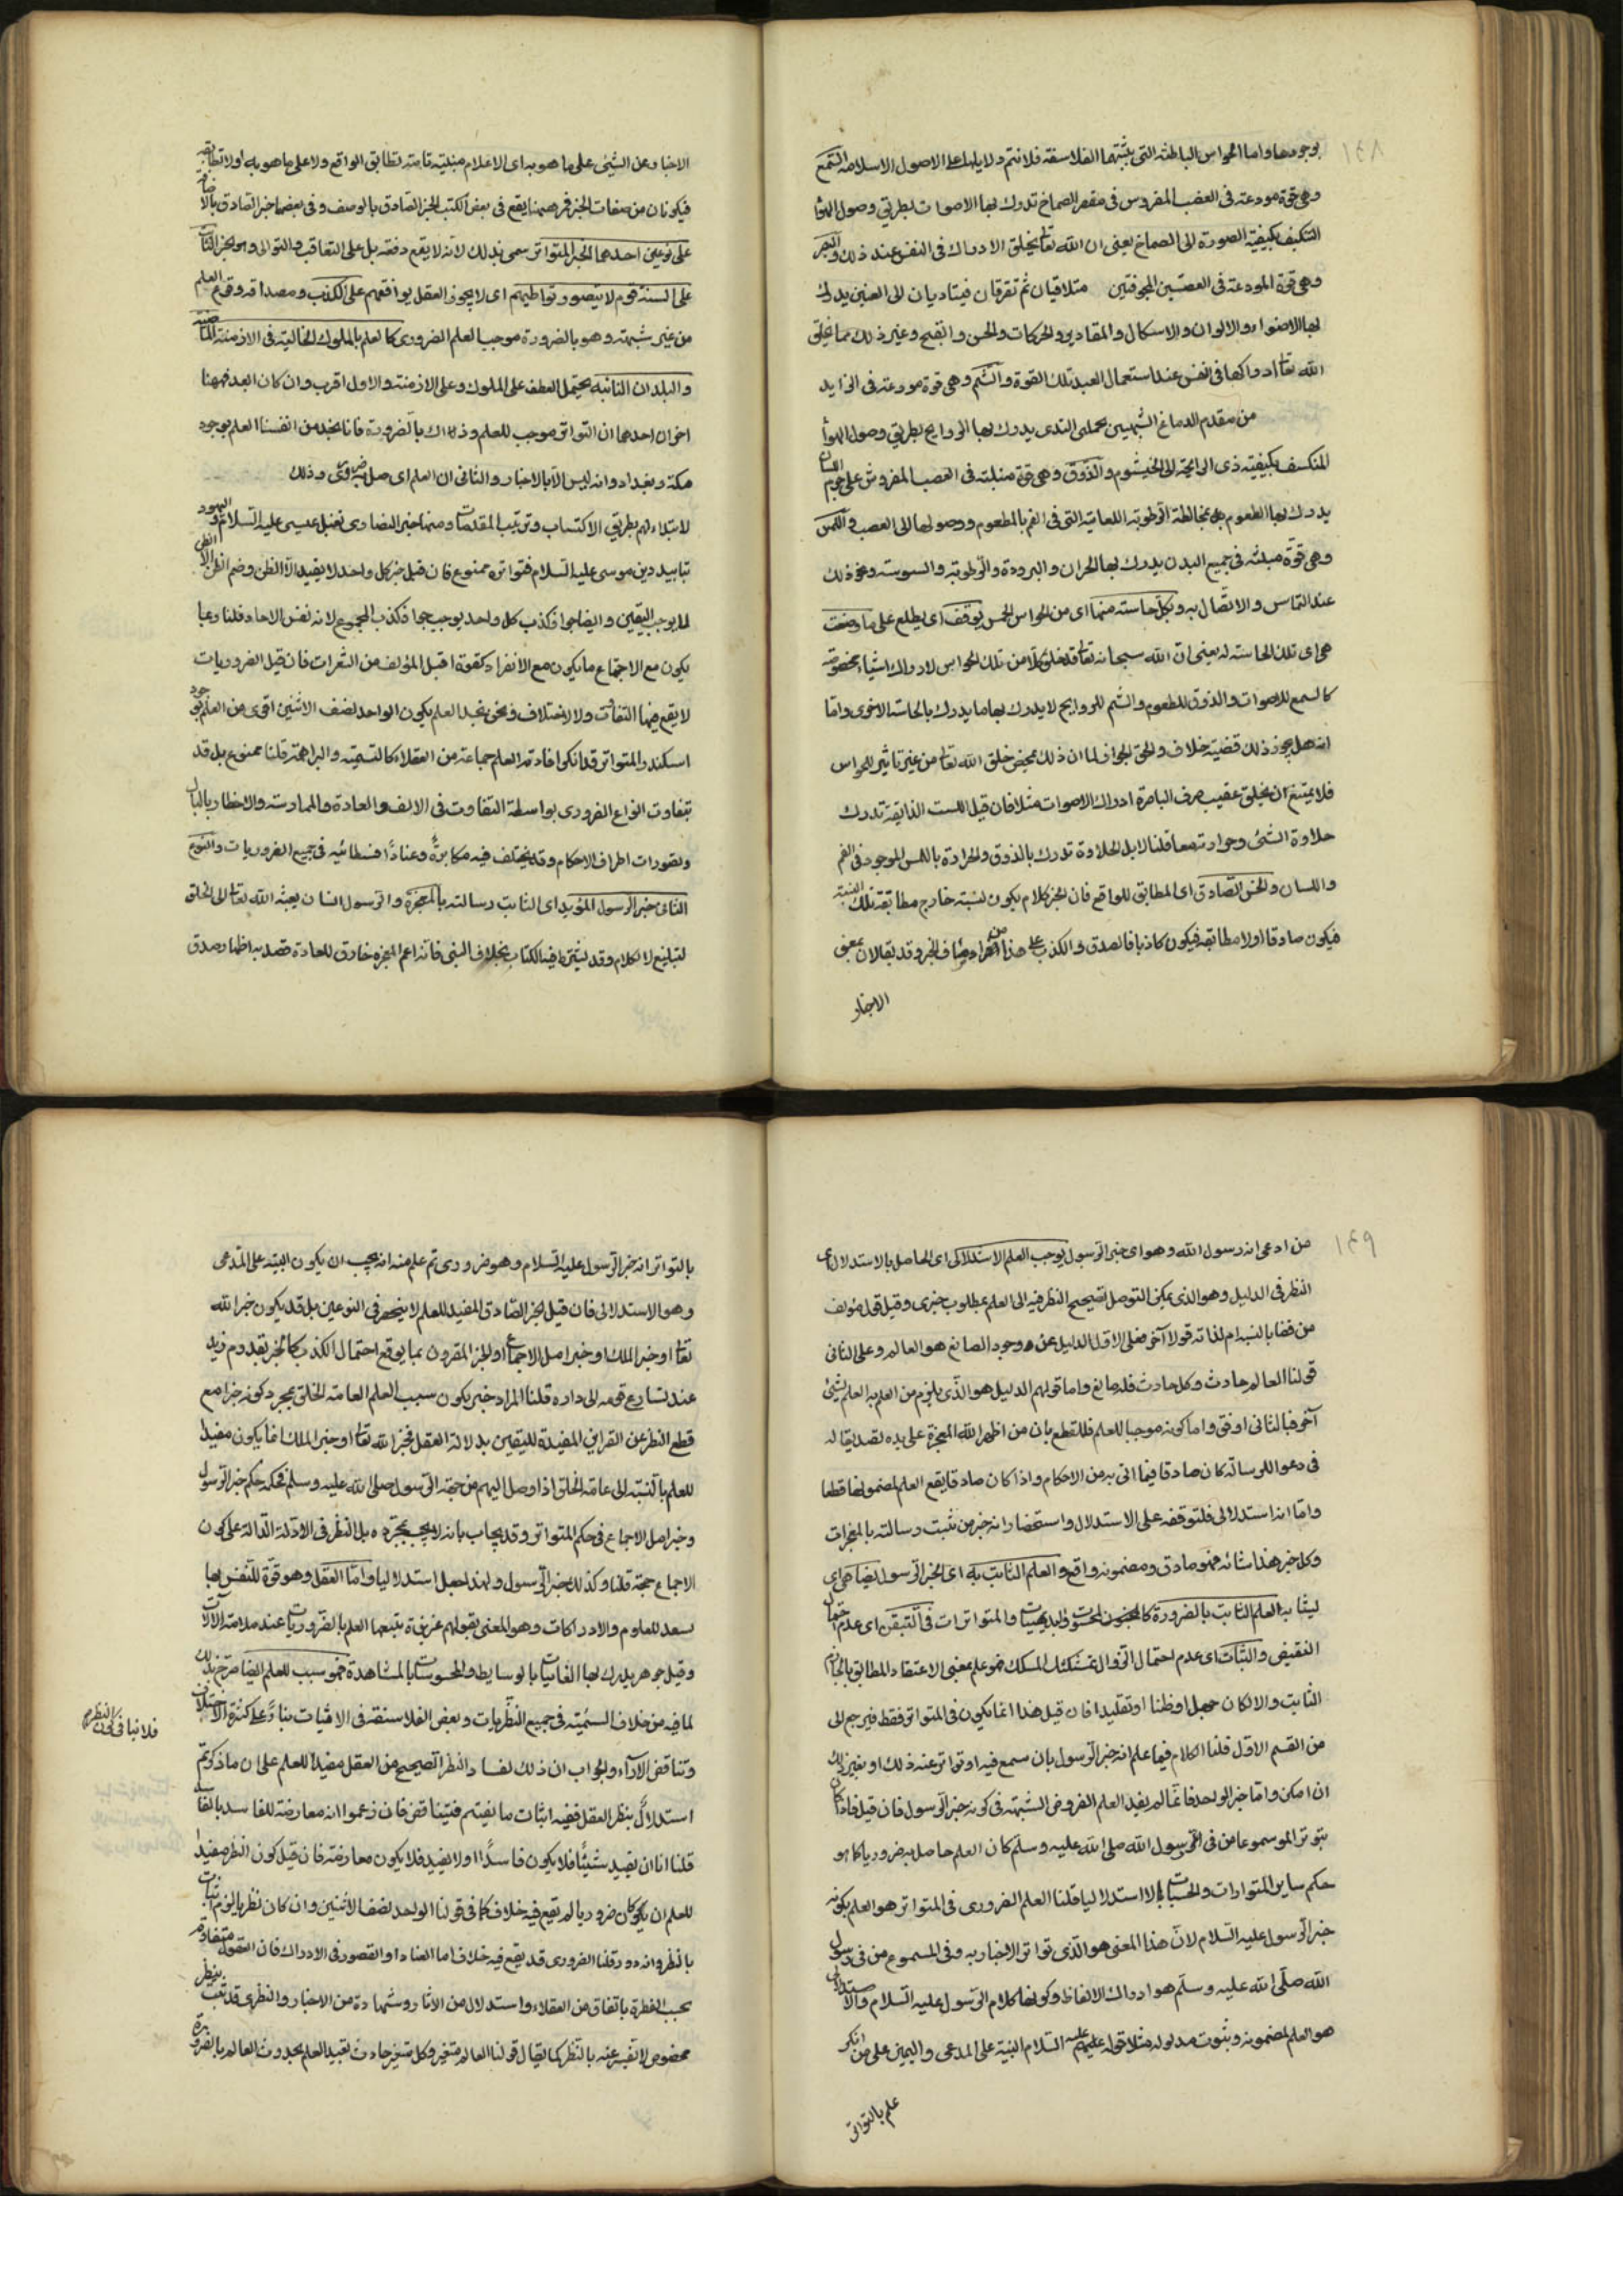 ١٤٨
بوجودها واما الحواس الباطنة التى يثبتها الفلاسفة فلا تتم دلايلها على الاصول الاسلامية السمع
وهى قوة مودعة فى العصب المفروس فى مقعر الصماخ تدرك بها الاصوات بطريق وصول الهوا
التكيف بكيفية الصورة الى الصماخ يعنى ان الله تعا يخلق الادراك فى النفس عند ذلك والبصر
وهى قوة المودعة فى العصبتين المجوفتين متلاقيان ثم تفرقان فيتاديان الى العينين يدرك
بها الاضواء والالوان والاسكال والمقادير والحركات والحسن والقبح وغير ذلك مما يخلق
الله تعا ادراكها فى النفس عند استعمال العبد تلك القوة والشم وهى قوة مودعة فى الزايد
من مقدم الدماغ الشبهيين بحملتى الثدى يدرك بها الروايح بطريق وصول الهوأ
المنكسف بكيفيته ذى الرايحة الى الخيشوم والذوق وهى قوة منبثة فى العصب المفروش على جرم اللسان
يدرك بها الطعوم بمخالطة الرطوبة اللعابية التى فى الفم بالمطعوم ووصولها الى العصب واللمس
وهى قوة مبثة فى جميع البدن يدرك بها الحران والبرودة والرطوبة والسوسته ونحو ذلك
عند التماس والاتصال به وبكل حاسة منها اى من الحواس الخمس يوقف اى يطلع على ما وضعت
هى اى تلك الحاسة له يعنى ان الله سبحانه تعا قد خلق كلا من تلك الحواس لادراك اشياء مخصوصة
كالسمع للاصوات والذوق للطعوم والشم للروايح لا يدرك بها ما يدرك بالحاسة الاخرى واما
انه هل يجوز ذلك قضيته خلاف والحق الجواز لما ان ذلك بمحض خلق الله تعا من غير تاثير للحواس
فلا يمتنع ان يخلق عقيب صرف الباصرة ادراك الاصوات مثلا فان قيل الست الذايقة تدرك
حلاوة الشئ وحرارته معا قلنا لا بل الحلاوة تدرك بالذوق والحرارة باللمس الموجود فى الفم
واللسان والخبر الصادق اى المطابق للواقع فان الخبر كلام يكون لنسبته خارج مطابقة تلك النسبة
فيكون صادقا او لا مطابقه فيكون كاذبا فالصدق والكذب على هذا من اوصاف الخبر وقد يقالان بمعنى
الاخبار
الاخبار عن الشئ على ما هو به اى الاعلام بنسبة تامة تطابق الواقع ولا على ما هو به اولا تطابقه
فيكونان من صفات المخبر فمن ههنا يقع فى بعض الكتب الخبر الصادق بالوصف وفى بعضها خبر الصادق بالاضافة
على نوعين احدهما الخبر المتواتر سمى بذلك لانه لا يقع دفعة بل على التعاقب والتوالى وهو الخبر الثابت
على السنة قوم لا يتصور تواطيهم اى لا يجوز العقل توافقهم على الكذب ومصداقه وقوع العلم
من غير شبهة وهو بالضرورة موجب العلم الضرورى كالعلم بالملوك الخالية فى الازمنة الماضية
والبلدان النائية يحتمل العطف على الملوك وعلى الازمنة والاول اقرب وان كان ابعد فههنا
اخوان احدهما ان التواتر موجب للعلم وذلك بالضرورة فانا نجد من انفسنا العلم بوجود
مكة وبغداد وانه ليس الا بالاخبار والثانى ان العلم اى صل به ضرورى وذلك
لا بتداء لهم بطريق الاكتساب وترتيب المقدمات ومنها خبر النصارى بقتل عيسى عليه السلام واليهود
بتابيد دين موسى عليه السلام فتواتره ممنوع فان قيل خبر كل واحد لا يفيد الا الظن وضم الظن الى الظن
لا يوجب اليقين وايضا جواز كذب كل واحد يوجب جواز كذب المجموع لانه نفس الاحاد قلنا ربما
يكون مع الاجتماع ما يكون مع الانفراد كقوة الحبل المؤلف من الشعرات فان قيل الضروريات
لا يقع فيها التفاوت ولا الاختلاف ونحن نجد العلم بكون الواحد نصف الاثنين اقوى من العلم بوجود
اسكندر والمتواتر قد انكر افادته العلم جماعة من العقلاء كالسمنية والبراهمة قلنا ممنوع بل قد
تتفاوت انواع الضرورى بواسطة التفاوت فى الالف والعادة والممارسة والاخطار بالبال
وتصورات اطراف الاحكام وقد يختلف فيه مكابرة وعنادا كفسطائيه فى جميع الضروريات والنوع
الثانى خبر الرسول المؤيد اى الثابت رسالته بالمعجزة والرسول انسان بعثه الله تعا الى الخلق
لتبليغ الاحكام وقد يشترط فيه الكتاب بخلاف النبى فانه اعم المعجزة خارق للعادة قصد به اظهار صدق
١٤٩
من ادعى انه رسول الله وهو اى خبر الرسول يوجب العلم الاستدلالى اى الحاصل بالاستدلال اى
النظر فى الدليل وهو الذى يمكن التوصل بصحيح النظر فيه الى العلم بمطلوب خبرى وقيل قول مؤلف
من قضايا يستلزم لذاته قولا آخر فعلى الاول الدليل على وجود الصانع هو العالم وعلى الثانى
قولنا العالم حادث وكل حادث فله صانع واما قولهم الدليل هو الذى يلزم من العلم به العلم بشئ
آخر فبالثانى اوفق واما كونه موجبا للعلم فللقطع بان من اظهر الله المعجزة على يده تصديقا له
فى دعوا للرسالة كان صادقا فيما اتى به من الاحكام واذا كان صادقا يقع العلم لمضمونها قطعا
واما انه استدلالى فلتوقفه على الاستدلال واستحضار انه خبر من ثبت رسالته بالمعجزات
وكل خبر هذا شانه فهو صادق ومضمونه واقع والعلم الثابت به اى بخبر الرسول ايضا هى اى
يشابه العلم الثابت بالضرورة كالمحسوسات والبديهيات والمتواترات فى التيقن اى عدم احتمال
النقيض والثبات اى عدم احتمال الزوال بتشكيك المسكك فهو علم بمعنى الاعتقاد المطابق الجازم
الثابت والا لكان جهلا او ظنا او تقليدا فان قيل هذا انما يكون فى المتواتر فقط فيرجع الى
من القسم الاول قلنا الكلام فيما علم انه خبر الرسول بان سمع فيه او تواتر عنه ذلك او بغير ذلك
ان امكن واما خبر الواحد فانما لم يفد العلم الفروض الشبهة فى كونه خبر الرسول فان قيل فاذا كان
متوترا او مسموعا من فى رسول الله صلى الله عليه وسلم كان العلم حاصل به ضروريا كما هو
حكم ساير المتواترات والحسيات لا استدلاليا قلنا العلم الضرورى فى المتواتر هو العلم بكونه
خبر الرسول عليه السلام لان هذا المعنى هو الذى تواتر الاخبار به وفى المسموع من فى رسول
الله صلى الله عليه وسلم هو ادراك الالفاظ وكونها كلام الرسول عليه السلام والاستدلالى
هو العلم لمضمونه وثبوت مدلوله مثلا قوله عليه السلام البينة على المدعى واليمين على من انكر
علم بالتواتر
بالتواتر انه خبر الرسول عليه السلام وهو ضرورى ثم علم منه انه يجب ان يكون البينة على المدعى
وهو الاستدلالى فان قيل الخبر الصادق المفيد للعلم لا ينحصر فى النوعين بل قد يكون خبر الله
تعا او خبر الملك او خبر اهل الاجماع او الخبر المقرون بما يوقع احتمال الكذب كالخبر بقدوم زيد
عند تسارع قومه الى داره قلنا المراد خبر يكون سبب العلم العامة الخلق بمجرد كونه خبرا مع
قطع النظر عن القراين المفيدة لليقين بدلالة العقل فخبر الله تعا او خبر الملك انما يكون مفيدا
للعلم بالنسبة الى عامة الخلق اذا وصل اليهم من جهة الرسول صلى الله عليه وسلم فحكمه حكم خبر الرسول
وخبر اهل الاجماع فى حكم المتواتر وقد يجاب بانه لا يجب بمجرده بل النظر فى الادلة الدالة على كون
الاجماع حجة قلنا وكذلك خبر الرسول ولهذا جعل استدلاليا واما العقل وهو قوة للنفس بها
يسعد للعلوم والادراكات وهو المعنى بقولهم غريزة يتبعها العلم بالضروريات عند سلامة الالات
وقيل جوهر يدرك بها الغائبات بالوسايط والمحسوسات بالمشاهدة فهو سبب للعلم ايضا صرح بذلك
لما فيه من خلاف السمنية فى جميع النظريات وبعض الفلاسفة فى الالهيات بناء على كثرة الاختلاف
وتناقض الآراء والجواب ان ذلك لفساد النظر الصحيح من العقل مفيدا للعلم على ان ما ذكرتم
استدلال بنظر العقل ففيه اثبات ما نفيتم فيتناقض فان زعموا انه معارضة للفاسد بالفاسد
قلنا اما ان يفيد شيئا فلا يكون فاسدا او لا يفيد فلا يكون معارضة فان قيل كون النظر مفيدا
للعلم ان كان ضروريا لم يقع فيه خلاف كما فى قولنا الواحد نصف الاثنين وان كان نظريا لزم اثبات
بالنظر وانه دور قلنا الضرورى قد يقع فيه خلاف اما العناد او القصور فى الادراك فان العقول متفاوتة
بحسب الفطرة باتفاق من العقلاء واستدلال من الاثار وشهادة من الاخبار والنظرى قد يثبت بنظر
مخصوص لا تفسر عنه بالنظر كما يقال قولنا العالم متغير وكل متغير حادث تفيد العلم بحدوث العالم بالضرورة